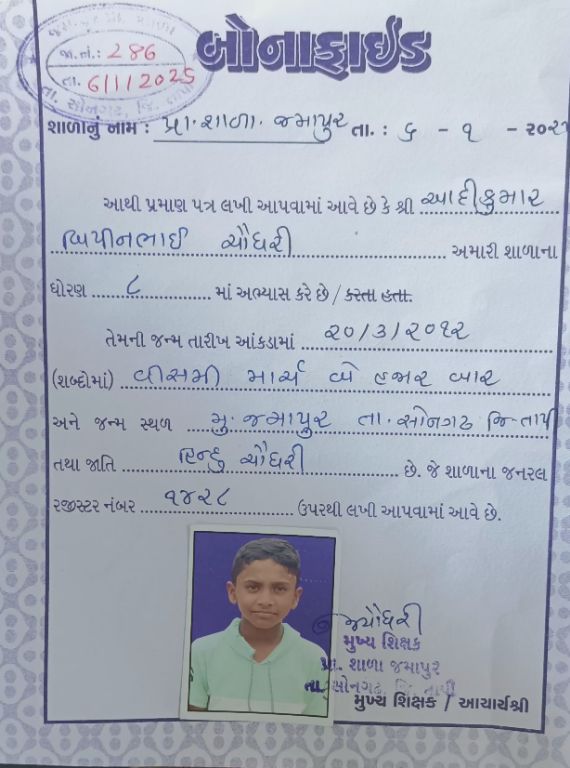 જા.નં.: 286
તા. 6/1/2025
તા. સોનગઢ, જિ. તાપી
બોનાફાઈડ
શાળાનું નામ : પ્રા. શાળા. જમાપુર તા. : ૬ - ૧ - ૨૦૨
આથી પ્રમાણ પત્ર લખી આપવામાં આવે છે કે શ્રી આદીકુમાર
બિપીનભાઈ ચૌધરી અમારી શાળાના
ધોરણ ૮ માં અભ્યાસ કરે છે / કરતા હતા.
તેમની જન્મ તારીખ આંકડામાં ૨૦/૩/૨૦૧૨
(શબ્દોમાં) વીસમી માર્ચ બે હજાર બાર
અને જન્મ સ્થળ મુ. જમાપુર તા. સોનગઢ જિ-તાપી
તથા જાતિ હિન્દુ ચૌધરી છે. જે શાળાના જનરલ
રજીસ્ટર નંબર ૧૪૨૮ ઉપરથી લખી આપવામાં આવે છે.
ચૌધરી
મુખ્ય શિક્ષક
પ્રા. શાળા જમાપુર
તા. સોનગઢ, જિ. તાપી
મુખ્ય શિક્ષક / આચાર્યશ્રી